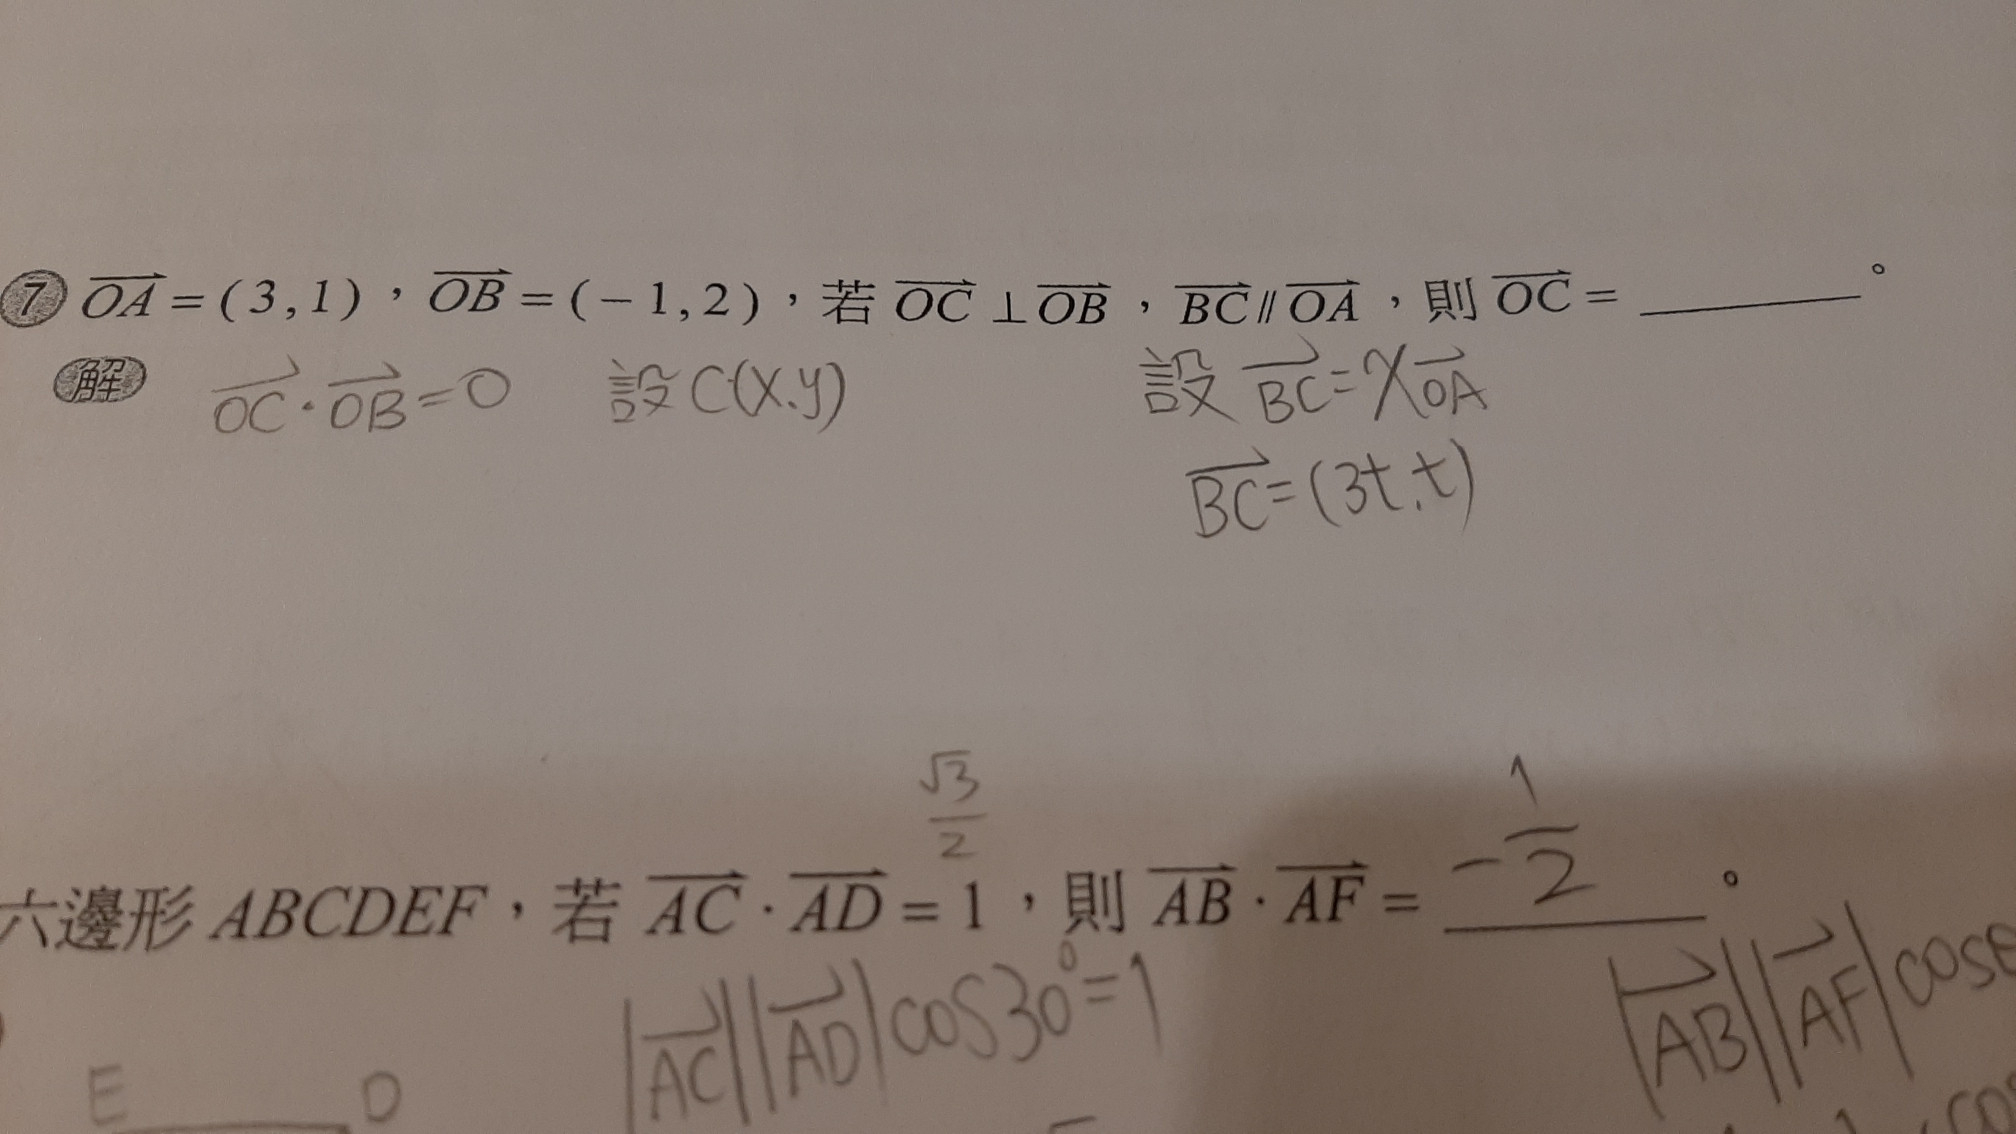 7 OA=(3,1),OB=(-1,2),若 OC⊥OB,BC∥OA,則 OC=______。
解 OC·OB=0 設C(x,y) 設 BC=xOA
BC=(3t,t)
√3/2
-1/2
六邊形 ABCDEF,若 AC·AD=1,則 AB·AF=______。
|AC||AD|cos30°=1 |AB||AF|cosθ
E D